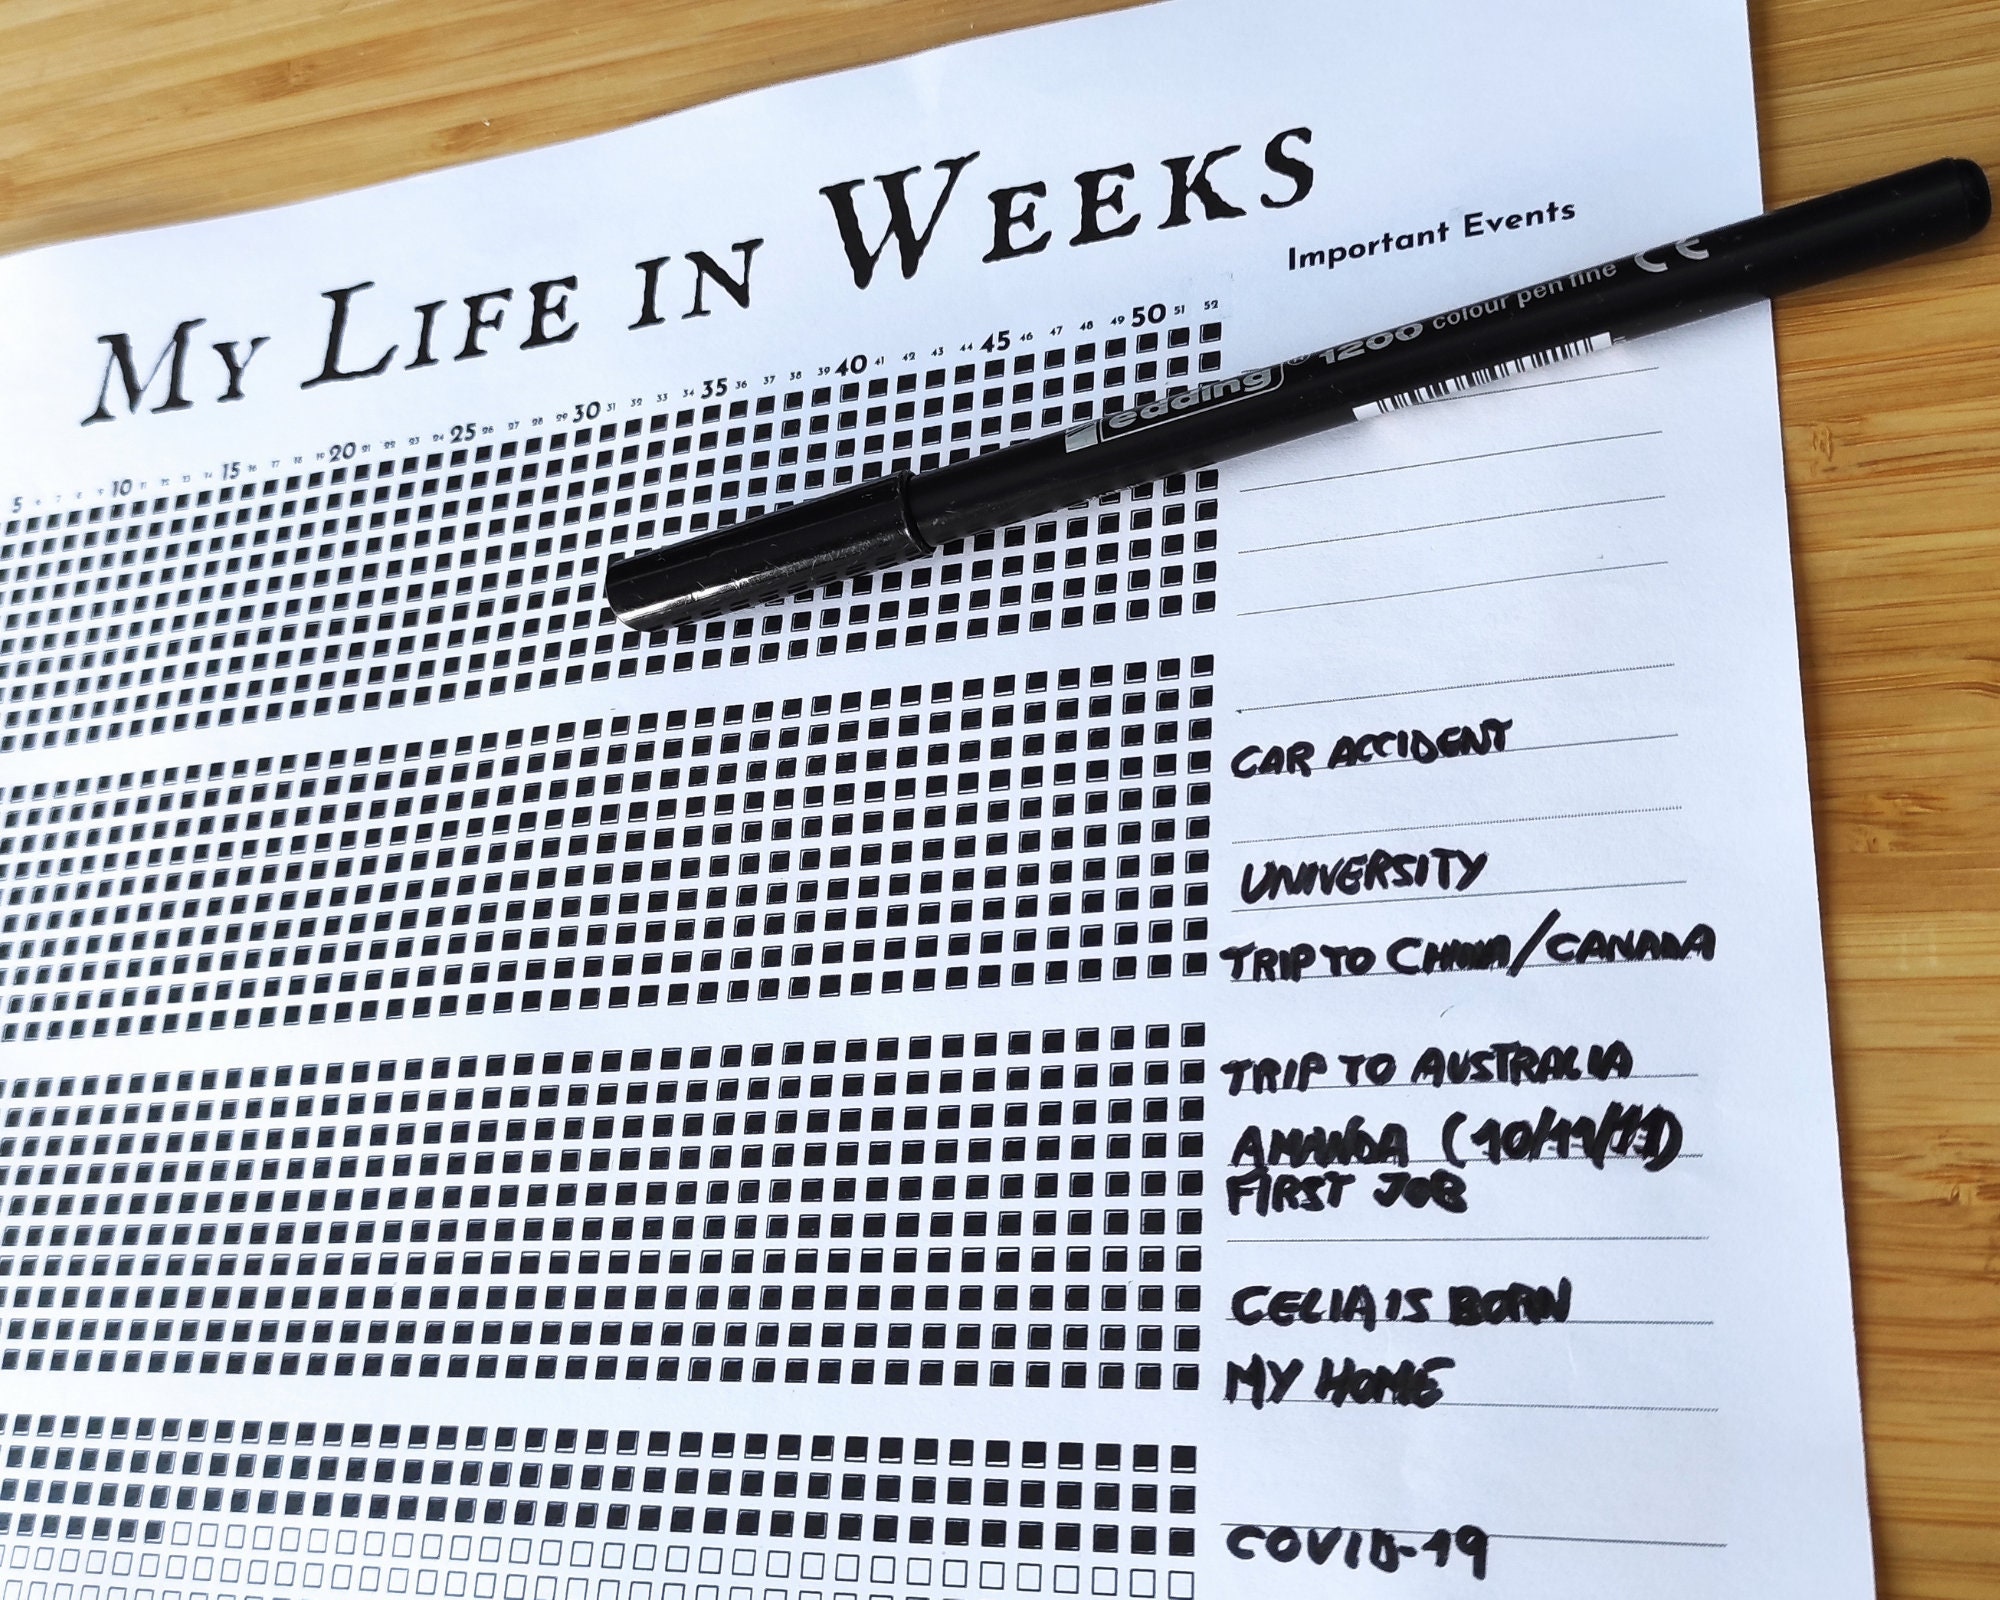 My Life in Weeks
Important Events
5 6 7 8 9 10 11 12 13 14 15 16 17 18 19 20 21 22 23 24 25 26 27 28 29 30 31 32 33 34 35 36 37 38 39 40 41 42 43 44 45 46 47 48 49 50 51 52
edding® 1200 colour pen fine CE
CAR ACCIDENT
UNIVERSITY
TRIP TO CHINA/CANADA
TRIP TO AUSTRALIA
AMANDA (10/11/11)
FIRST JOB
CELIA IS BORN
MY HOME
COVID-19